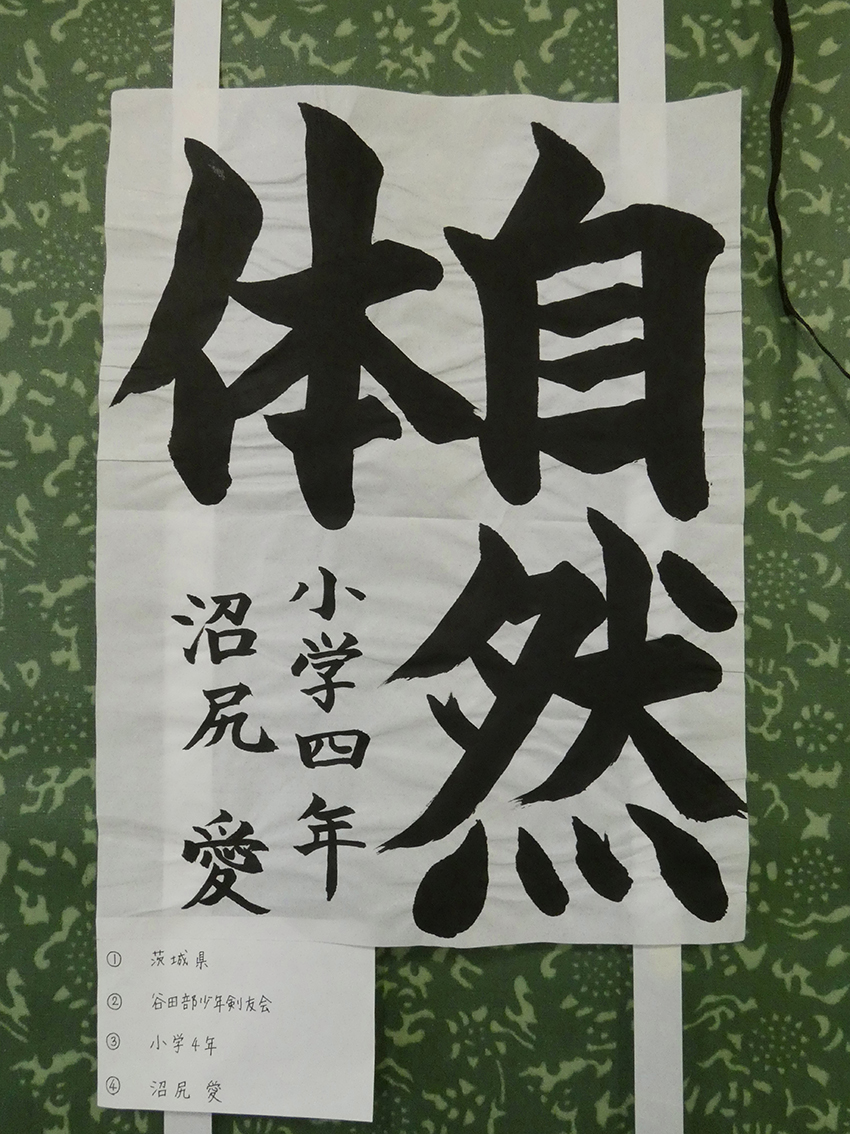 自然
体
小学四年
沼尻 愛
① 茨城県
② 谷田部少年剣友会
③ 小学4年
④ 沼尻 愛